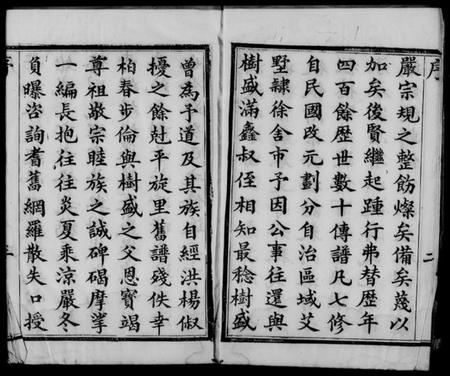 序
嚴宗規之整飭燦矣備矣蔑以
加矣後賢繼起踵行弗替歷年
四百餘歷世數十傳譜凡七修
自民國改元劃分自治區域艾
墅隸徐舍市予因公事往還與
樹盛滿鑫叔侄相知最稔樹盛
二
曾為予道及其族自經洪楊俶
擾之餘尅平旋里舊譜殘佚幸
柏春步倫與樹盛之父恩寶竭
尊祖敬宗睦族之誠碑碣摩挲
一編長抱往往炎夏乘涼嚴冬
負曝咨詢耆舊網羅散失口授
序
三